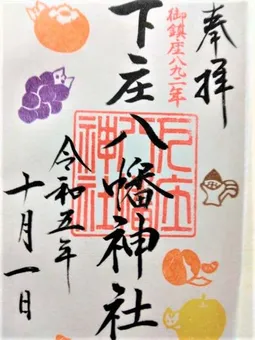 奉拝
御鎮座八九二年
下庄八幡神社
令和五年
十月一日